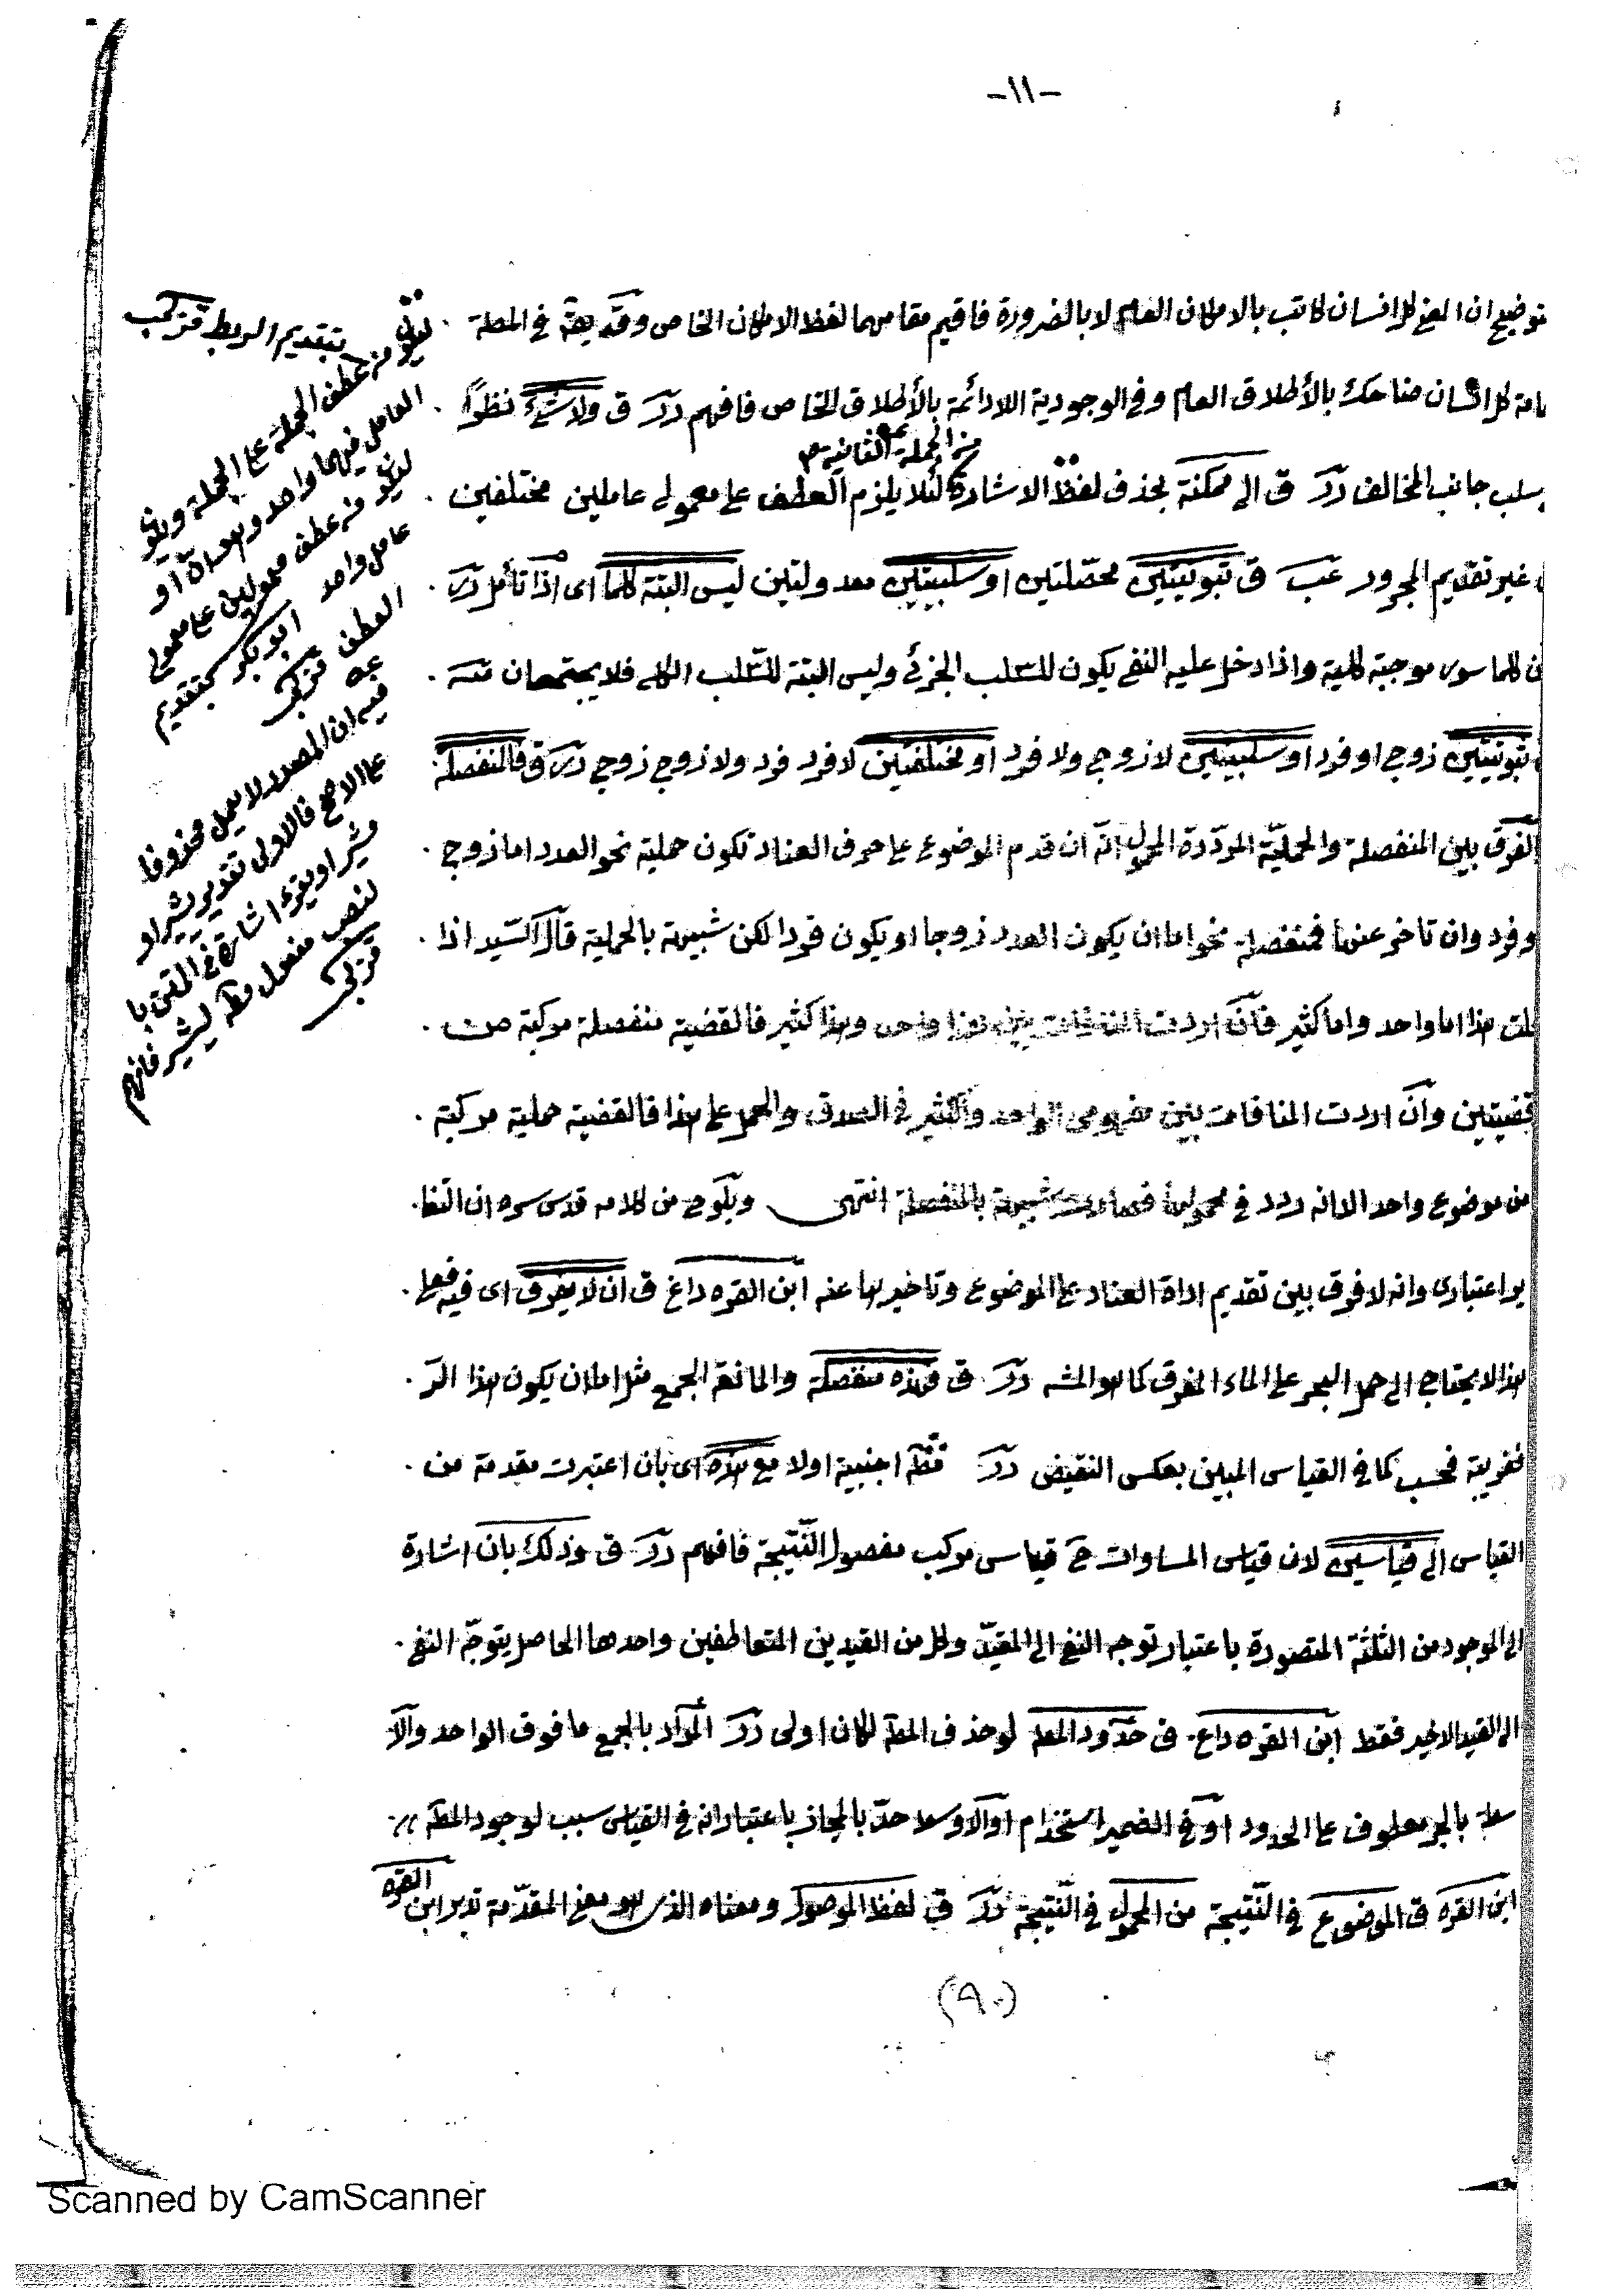 -١١-
توضيح ان المعنى كل انسان كاتب بالامكان العام لا بالضرورة فاقيم مقامهما لفظ الامكان الخاص وقد في المطلقة
كل انسان ضاحك بالأطلاق العام وفي الوجودية اللادائمة بالأطلاق الخاص فافهم درر ق ولاشئ نظراً
من الجملة الثانية
سلب جانب المخالف درر ق الى ممكنة بحذف لفظ الاشارة لئلا يلزم العطف على معمولى عاملين مختلفين
غير تقديم المجرور عب ق ثبوتيتين محصّلتين او سلبيتين معدولتين ليس البتة كلما اى اذا تأمل درر
كلما سور موجبة كلية واذا دخل عليه النفى يكون للسّلب الجزئى وليس البتة للسّلب الكلى فلا يجتمعان منه
ثبوتيتين زوج او فرد او سلبيتين لا زوج ولا فرد او مختلفتين لا فرد فرد ولا زوج زوج درر ق فالمنفصلة
الفرق بين المنفصلة والحمليّة المردّدة المحمول انّه ان قدم الموضوع على حرف العناد تكون حملية نحو العدد اما زوج
وفرد وان تاخر عنها فمنفصلة نحو اما ان يكون العدد زوجا او يكون فردا لكن شبيهة بالحملية قال السّيد اذا
قلت هذا اما واحد واما كثير فان اردت المنافات بين هذا واحد وهذا كثير فالقضية منفصلة مركبة من
قضيتين وان اردت المنافات بين مفهومى الواحد والكثير في الصدق والحمل على هذا فالقضية حملية مركبة
من موضوع واحد الا انه ردد في محمولها فصارت شبيهة بالمنفصلة انتهى ويلوح من كلامه قدس سره ان
اعتبارى وانه لا فرق بين تقديم اداة العناد على الموضوع وتاخيرها عنه ابن القره داغ ق ان لا يغرق اى فيه فعل
هذا لا يحتاج الى حمل البحر على الماء المغرق كما هو المشه درر ق فهذه منفصلة والمانعة الجمع مثل اما ان يكون هذا
فحسب كما في القياس المبين بعكس النقيض درر اجنبية اولا مع هذه اى بان اعتبرت مقدمة من
القياس الى قياسين لان قياس المساوات ح قياس مركب مفصول النّتيجة فافهم درر ق وذلك بان اشارة
الى الموجود من الثلثة المتصورة باعتبار توجه النفى الى المقيّد وكل من القيدين المتعاطفين واحدها الحاصل يتوجّه النفى
الى القيد الاخير فقط ابن القره داغ ق حدود المط لو حذف المط لكان اولى درر المراد بالجمع ما فوق الواحد والّا
بالجر معطوف على الحدود او في الضمير استخدام بالمجاز باعتبار انه في القياس سبب لوجود المط
ابن القره ق الموضوع في النّتيجة من المحمول في النّتيجة درر ق لفظ الموصول ومعناه الذى هو معنى المقدّمة تدبر ابن القره
(٩٠)
بتقديم الربط قزلجى
من عطف الجملة على الجملة
العامل فيهما واحد او
من عطف معمولين على معمولى
عامل واحد ابو بكر كتقديم
العطف قزلجى
فيه ان المصدر لا يعمل محذوفا
على الاصح فالاولى تقدير يشير او
مشيرا ويقرء اشارة في المتن با
لنصب مفعول مط ليشير فافهم
قزلجى
Scanned by CamScanner